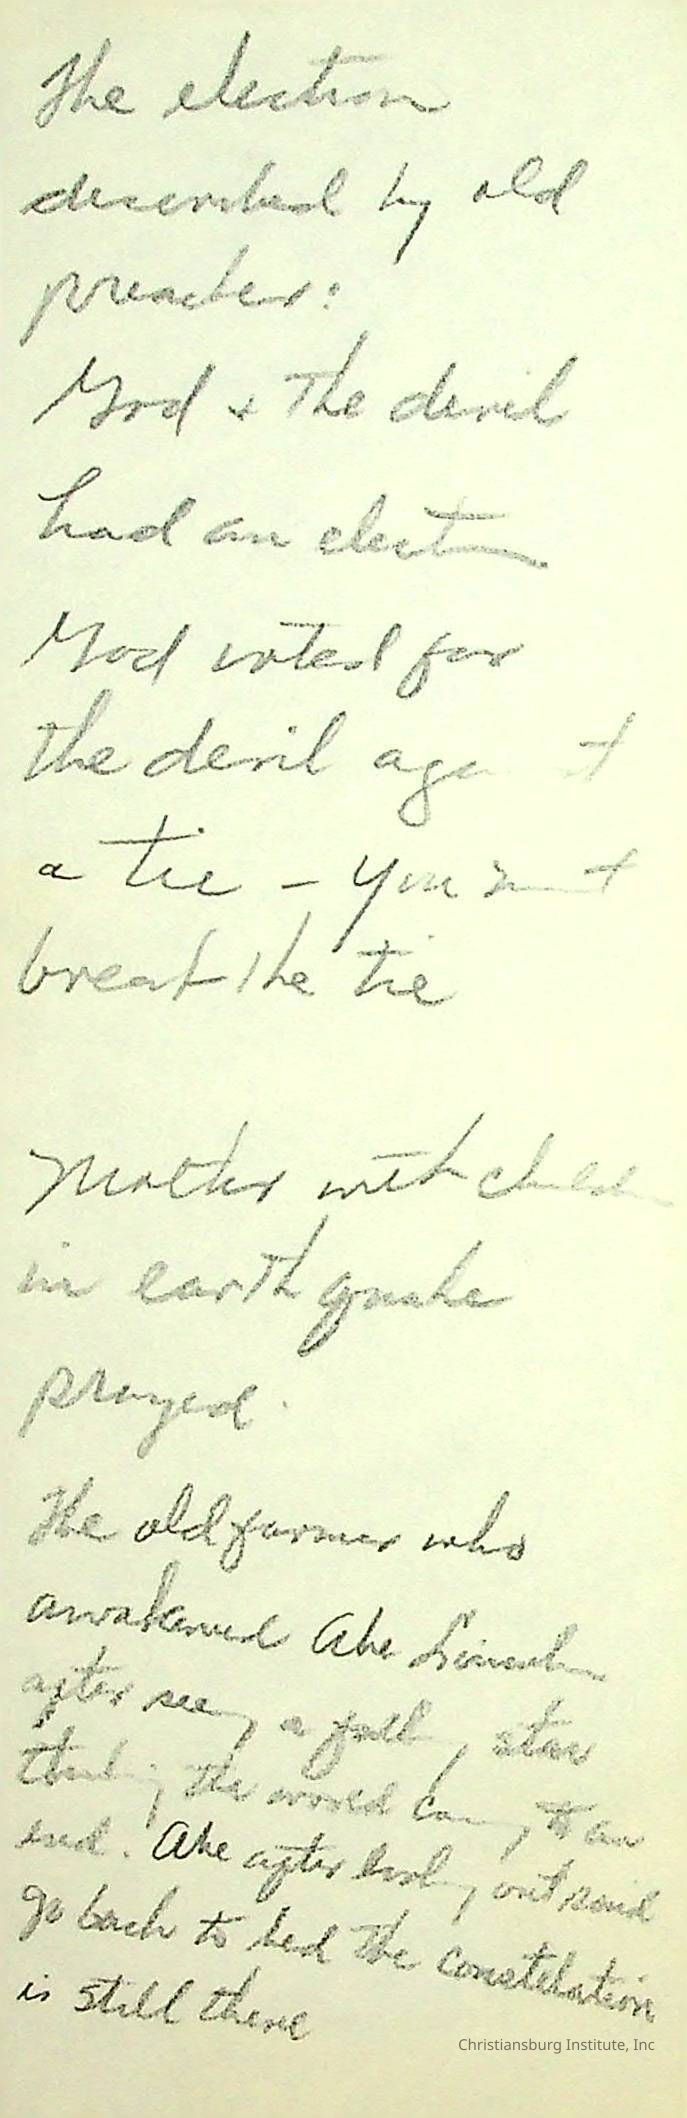 The election
described by old
preacher:
God & the devil
had an election
God voted for
the devil against
a tie - you must
break the tie
Mother with children
in earthquake
prayed.
The old farmer who
awakened Abe Lincoln
after seeing a falling star
thinking the world coming to an
end. Abe after looking out said
go back to bed the constelation
is still there
Christiansburg Institute, Inc